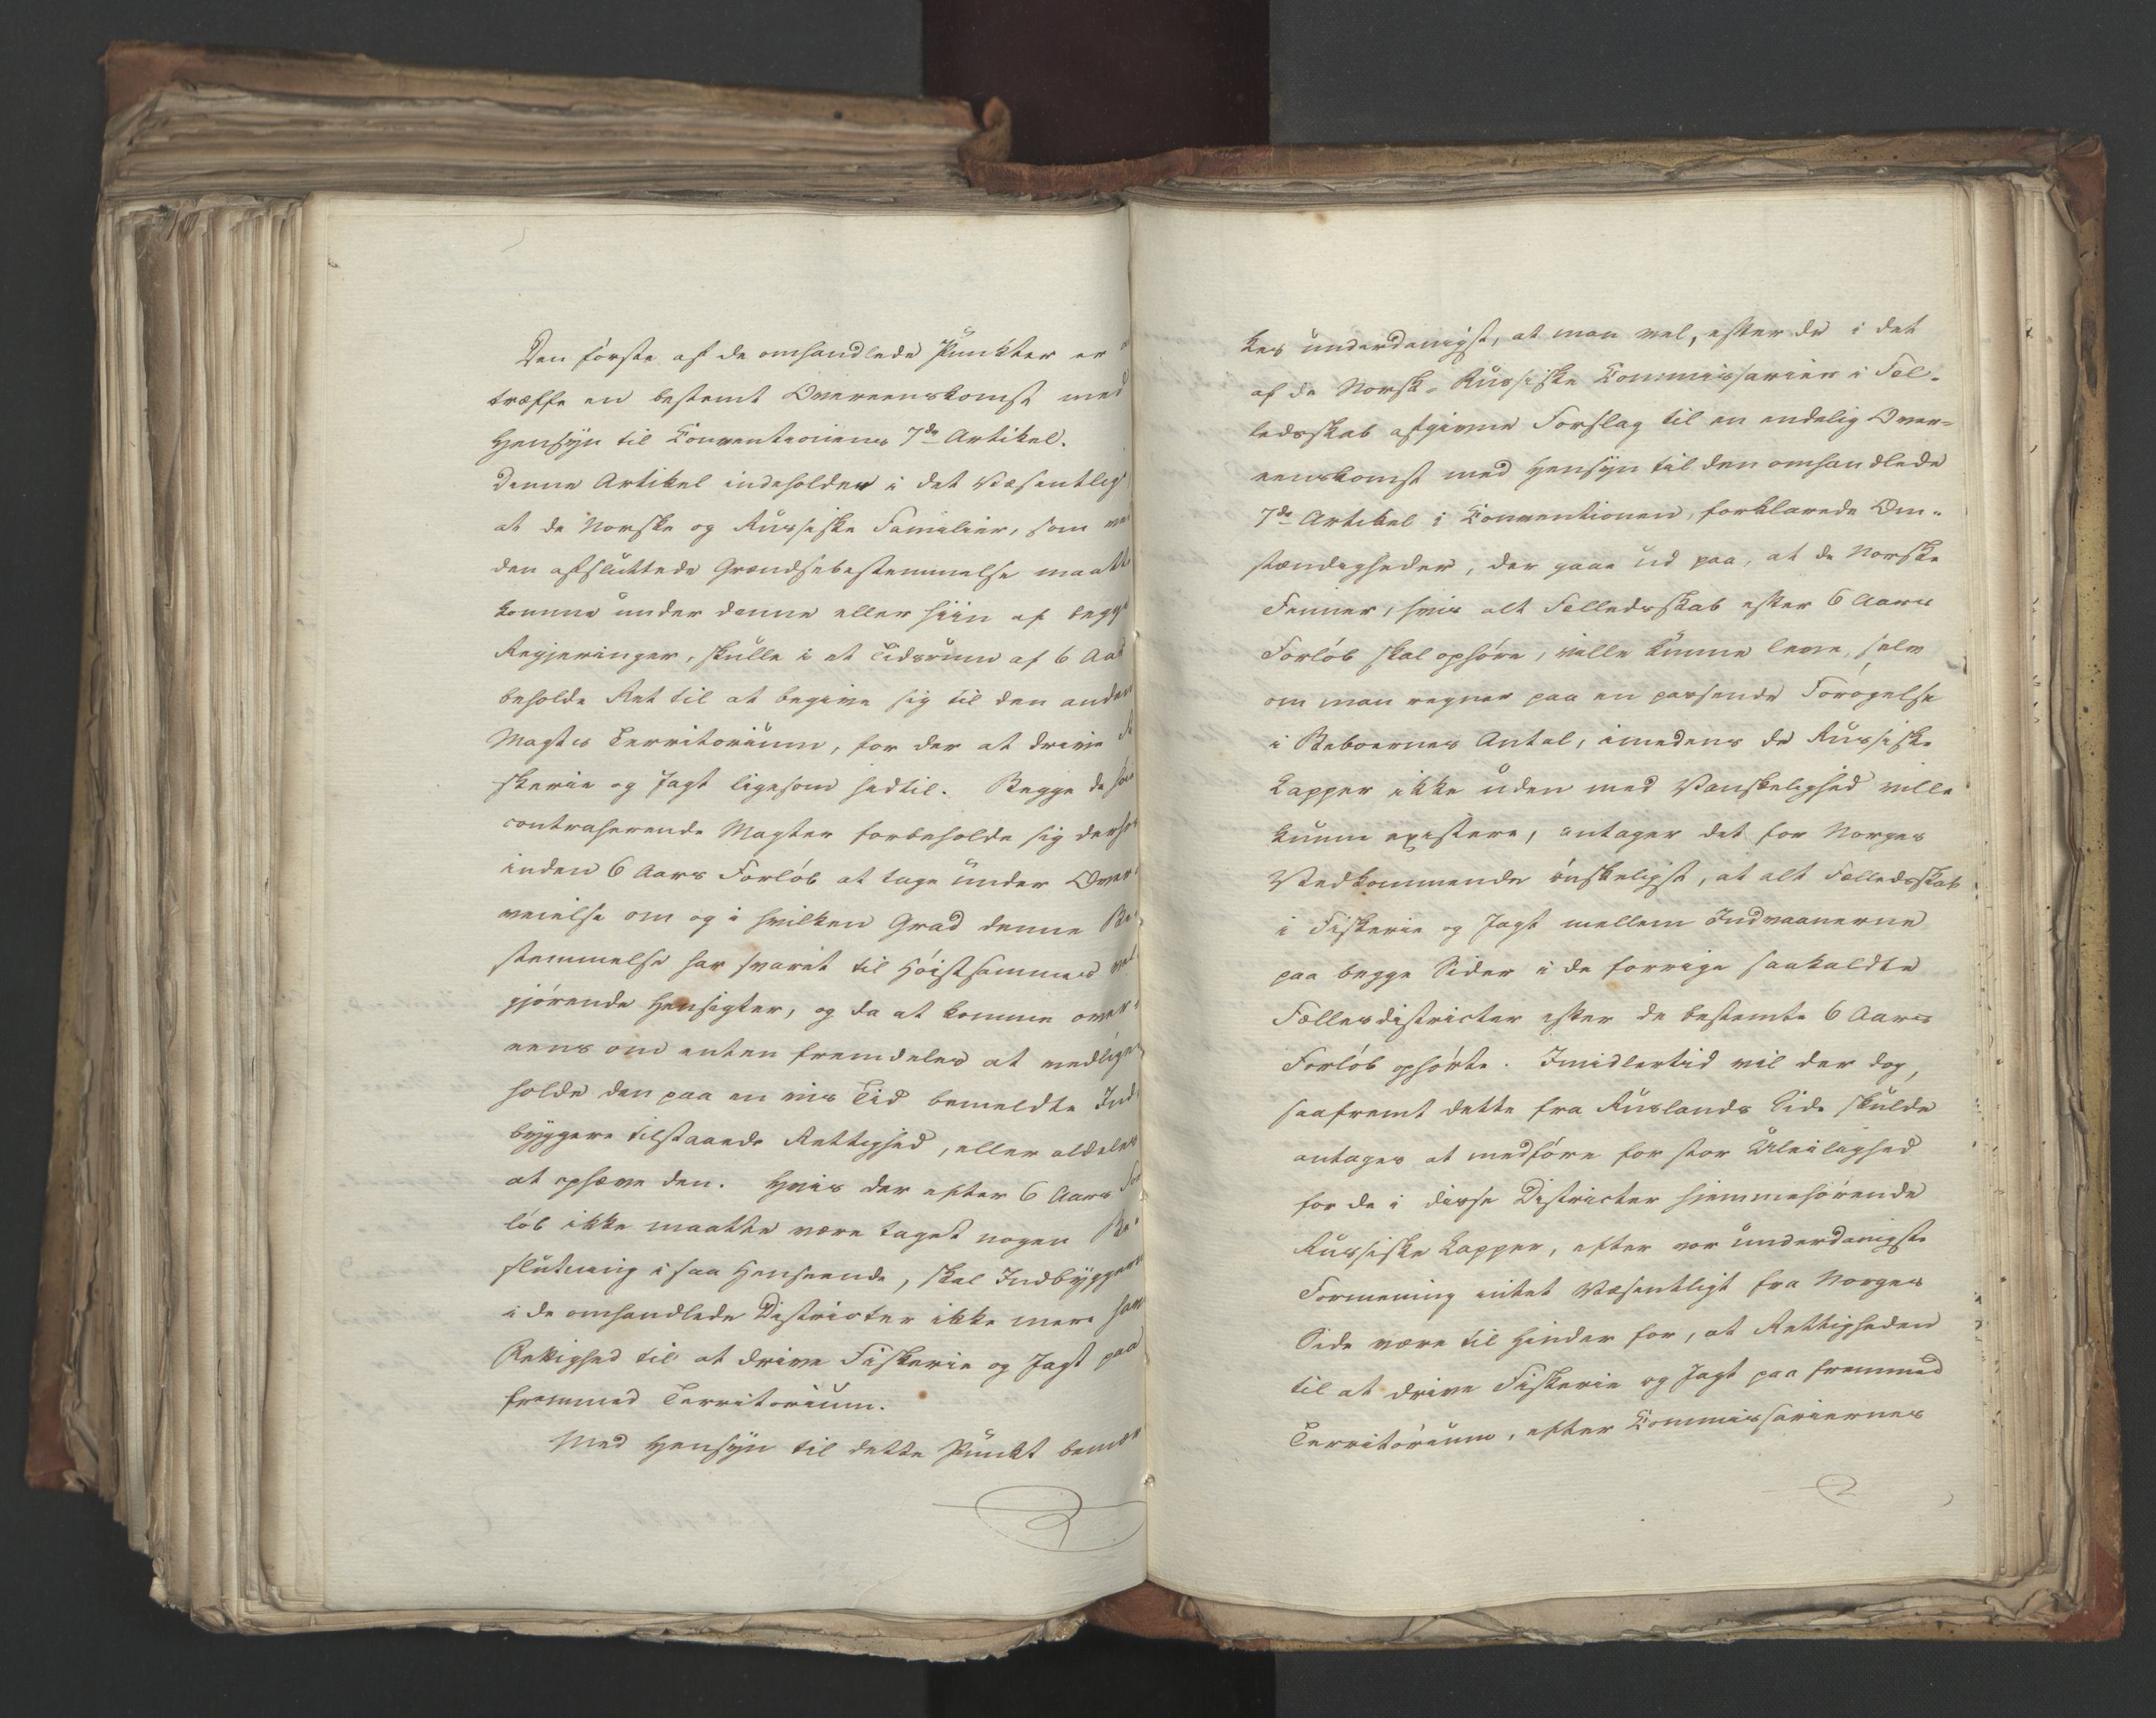 Den første af de omhandlede Punkter er
træffe en bestemt Overeenskomst med
Hensyn til Conventionens 7de Artikel.
Denne Artikel indeholder i det Væsentlig
at de Norske og Russiske Familier, som
den afsluttede Grændsebestemmelse maatte
komme under denne eller hiin af begge
Regjeringer, skulle i et Tidsrum af 6 Aar
beholde Ret til at begive sig til den anden
Magts Territorium, for der at drive Fi
skerie og Jagt ligesom hidtil. Begge de høie
contraherende Magter forbeholde sig derhos
inden 6 Aars Forløb at tage under Over
veielse om og i hvilken Grad denne Be
stemmelse har svaret til Høistsammes vel
gjørende Hensigter, og da at komme over
eens om enten fremdeles at vedlige
holde den paa en vis Tid bemeldte Ind
byggere tilstaaede Rettighed, eller aldeles
at ophæve den. Hvis der efter 6 Aars For
løb ikke maatte være taget nogen Be
slutning i saa Henseende, skal Indbyggerne
i de omhandlede Districter ikke mere have
Rettighed til at drive Fiskerie og Jagt paa
fremmed Territorium.
Med Hensyn til dette Punkt bemær
kes underdanigst, at man vel, efter de i det
af de Norsk-Russiske Commissarier i Fel-
ledsskab afgivne Forslag til en endelig Over-
eenskomst med Hensyn til den omhandlede
7de Artikel i Conventionen, forklarede Om-
stændigheder, der gaae ud paa, at de Norske
Finner, hvis alt Felledsskab efter 6 Aars
Forløb skal ophøre, ville kunne leve, selv
om man regner paa en passende Forøgelse
i Beboernes Antal, imedens de Russiske
Lapper ikke uden med Vanskelighed ville
kunne existere, antager det for Norges
Vedkommende ønskeligst, at alt Fælledsskab
i Fiskerie og Jagt mellem Indvaanerne
paa begge Sider i de forrige saakaldte
Fællesdistricter efter de bestemte 6 Aars
Forløb ophørte. Imidlertid vil der dog,
saafremt dette fra Ruslands Side skulde
antages at medføre for stor Uleilighed
for de i disse Districter hjemmehørende
Russiske Lapper, efter vor underdanigste
Formening intet Væsentligt fra Norges
Side være til Hinder for, at Rettigheden
til at drive Fiskerie og Jagt paa fremmed
Territorium, efter Commissariernes